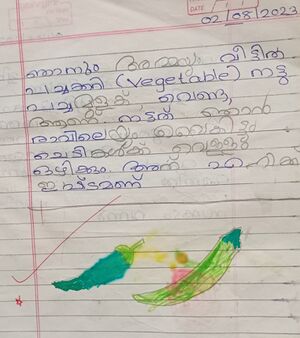 DATE
02/08/2023
ഞാനും അമ്മയും വീട്ടിൽ
പച്ചക്കറി (Vegetable) നട്ടു
പച്ചമുളക്, വെണ്ട,
ആണ് നട്ടത് ഞാൻ
രാവിലെയും വൈകിട്ടും
ചെടികൾക്ക് വെള്ളം
ഒഴിക്കും. അത് എനിക്ക്
ഇഷ്ടമാണ്